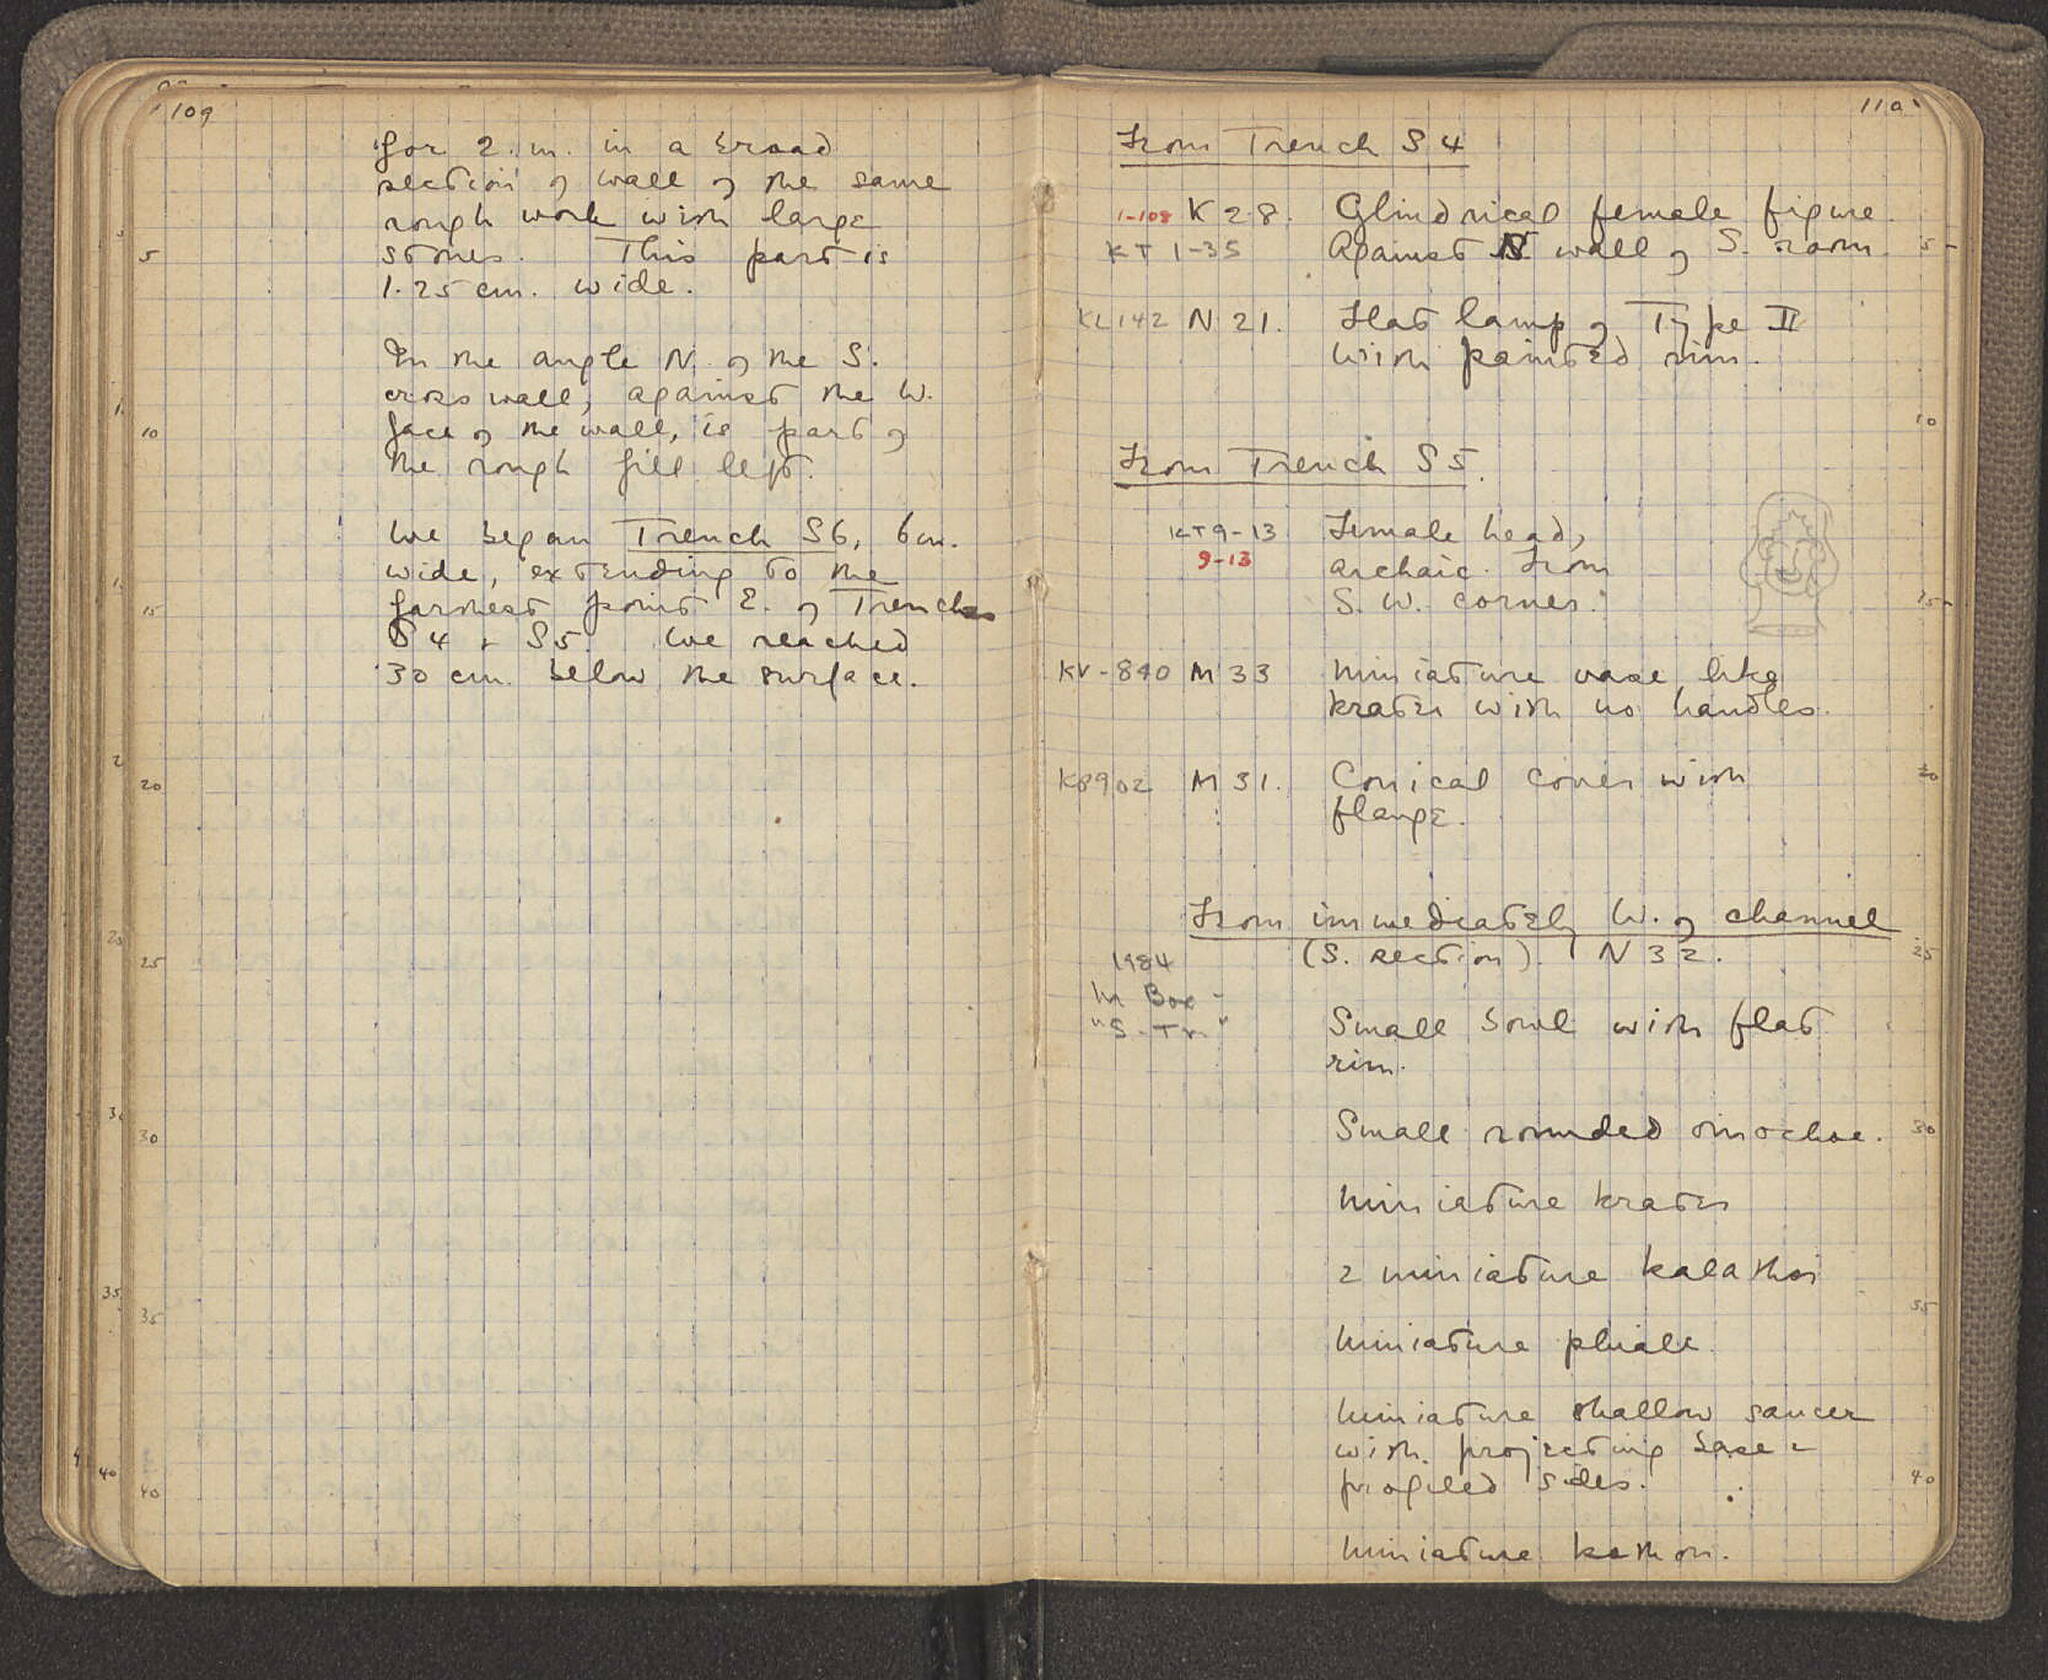 109
for 2. m. in a broad
section of wall of the same
rough work with large
stones. This part is
1.25 cm. wide.
In the angle N. of the S.
cross wall, against the W.
face of the wall, is part of
the rough fill left.
We began Trench S6, 6 m.
wide, extending to the
farthest point E. of Trenches
S4 + S5. We reached
30 cm. below the surface.
5
10
15
20
25
30
35
40
110
From Trench S4
1-108 K 28. Cylindrical female figure
KT 1-35 Against N wall of S. room 5
KL142 N 21. Flat lamp of Type II
with painted rim.
10
From Trench S5.
KT9-13 Female head,
9-13 archaic. From
S. W. corner. 15
KV-840 M 33 Miniature vase like
krater with no handles.
KP902 M 31. Conical cover with 20
flange.
From immediately W. of channel
(S. section). N 32. 25
1984
In Box -
"S-Tr." Small bowl with flat
rim.
Small rounded oinochoe. 30
Miniature krater
2 miniature kalathoi
35
Miniature phiale.
Miniature shallow saucer
with projecting base +
profiled sides. 40
Miniature kothon.